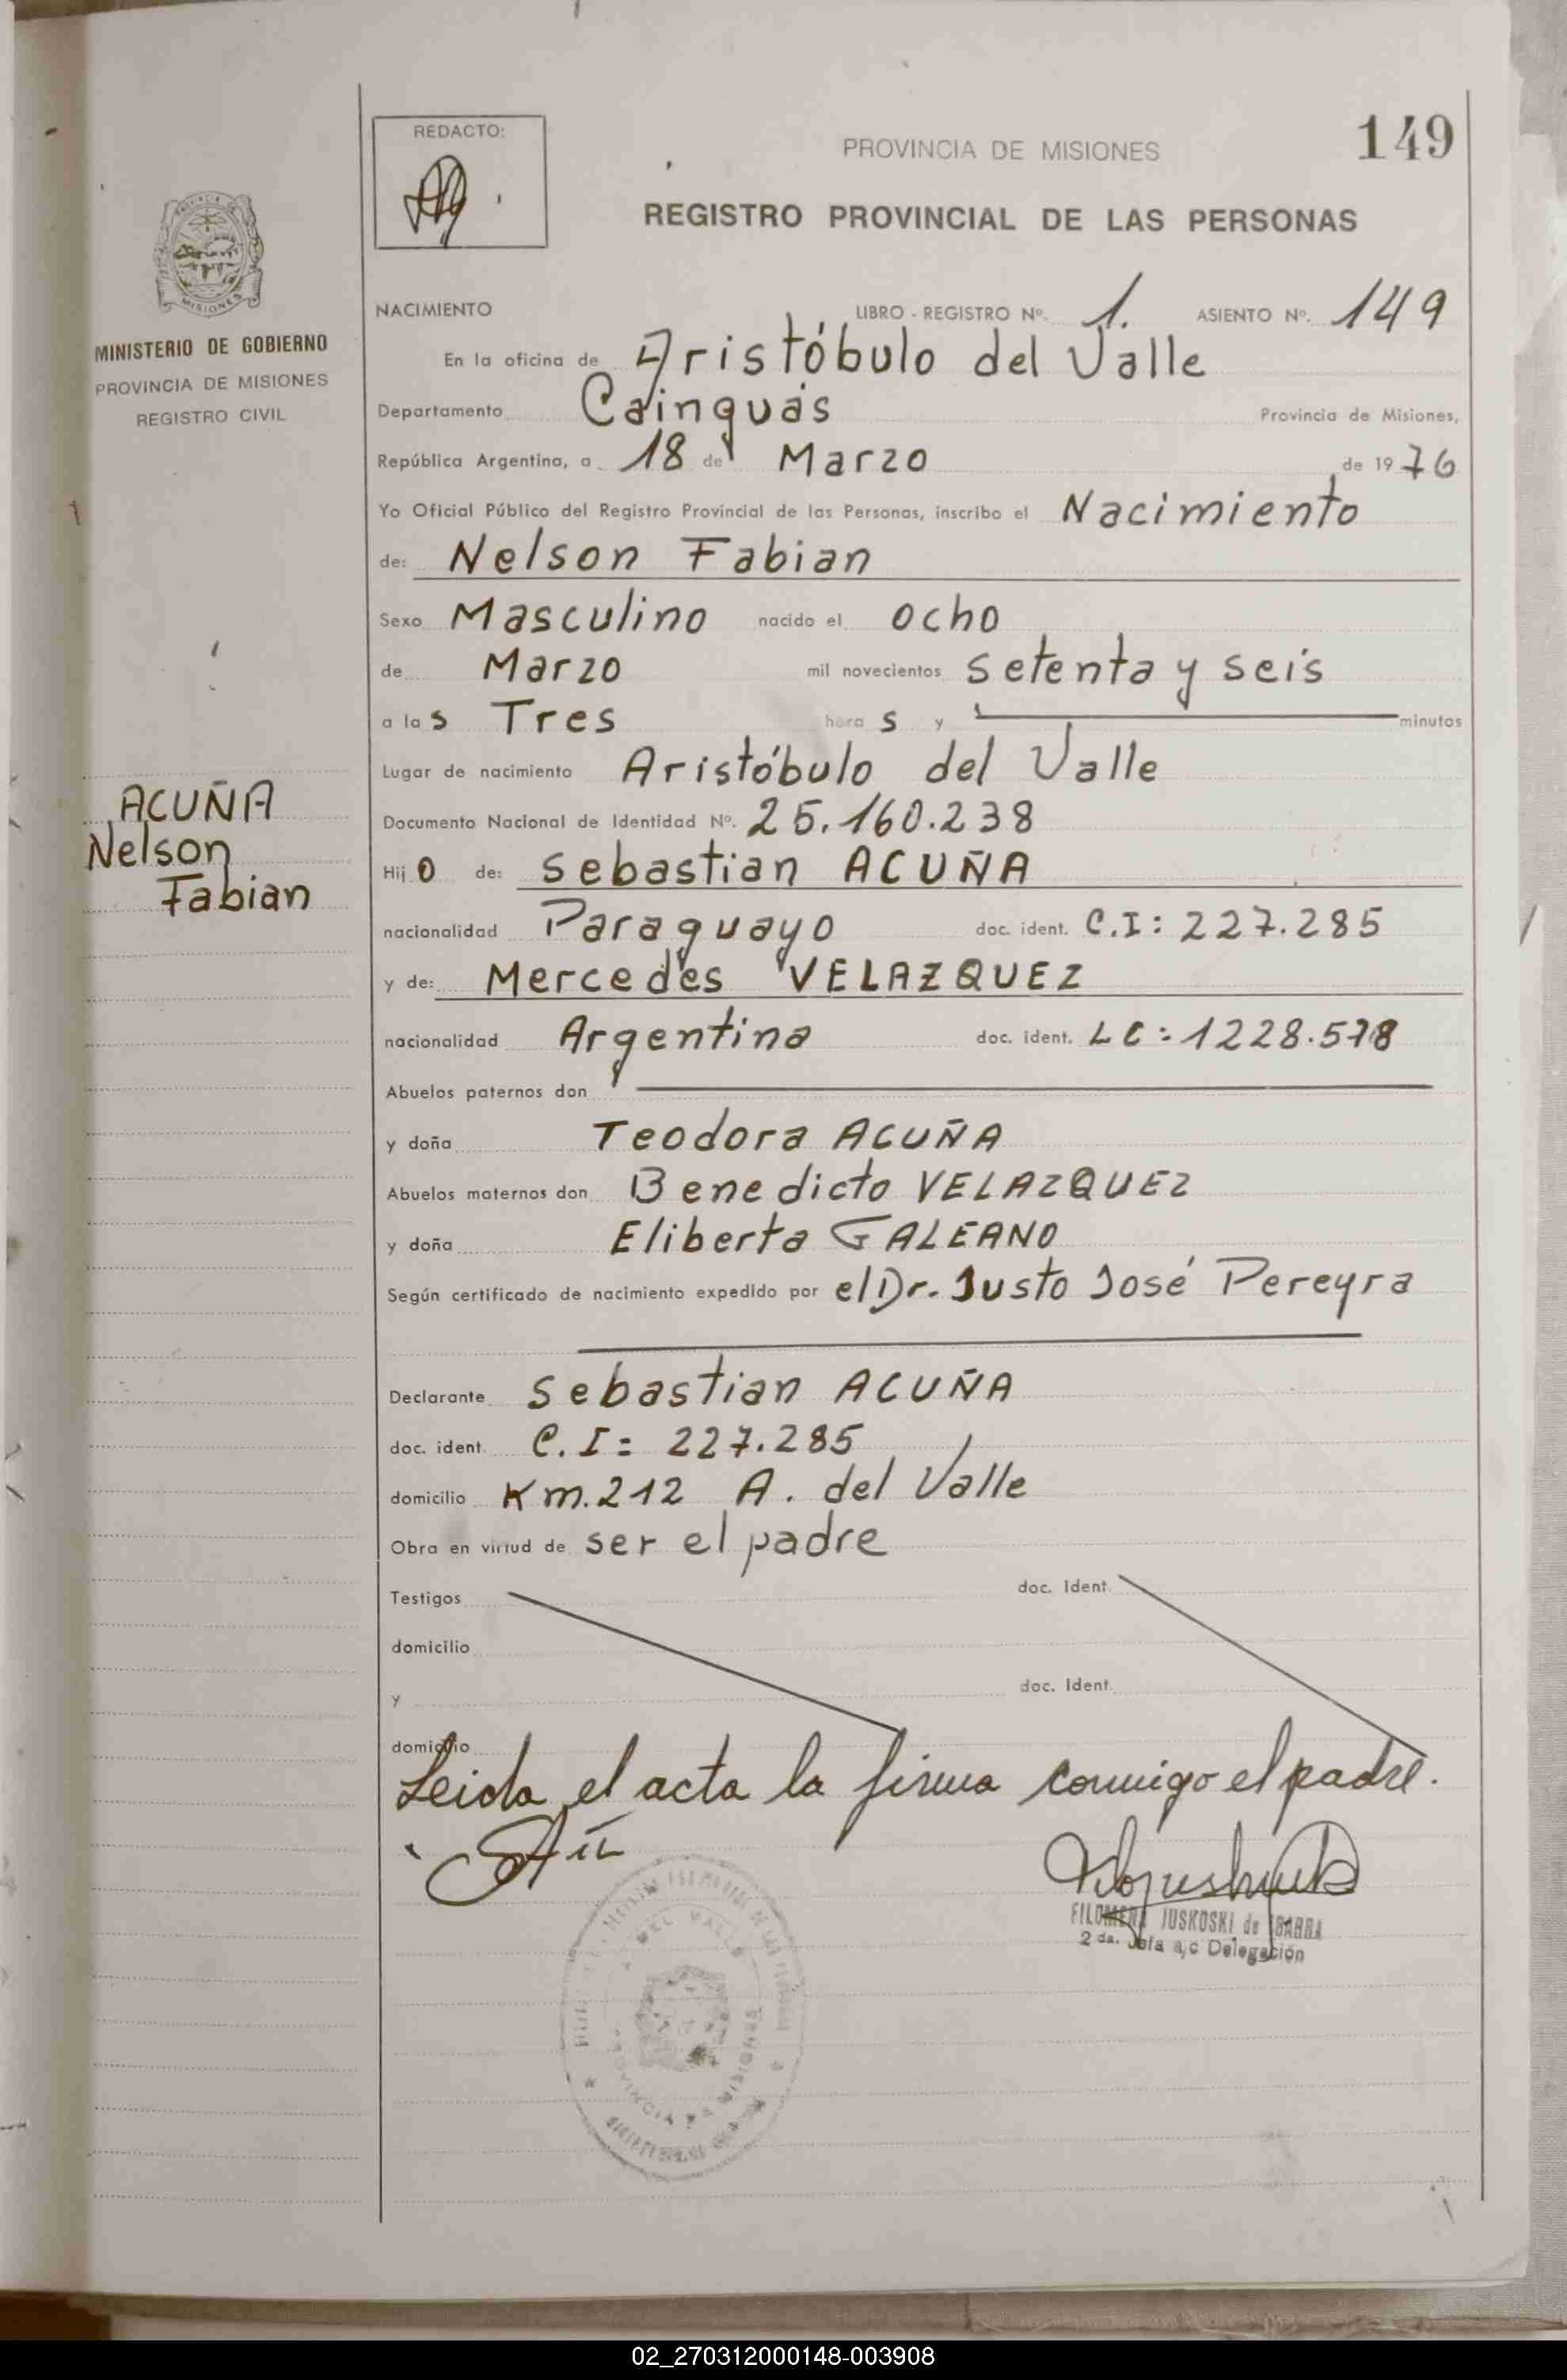 REDACTO:
PROVINCIA DE MISIONES
149
REGISTRO PROVINCIAL DE LAS PERSONAS
MISIONES
MINISTERIO DE GOBIERNO
PROVINCIA DE MISIONES
REGISTRO CIVIL
NACIMIENTO LIBRO - REGISTRO Nº. 1. ASIENTO Nº. 149
En la oficina de Aristóbulo del Valle
Departamento Cainguás Provincia de Misiones,
República Argentina, a 18 de Marzo de 1976
Yo Oficial Público del Registro Provincial de las Personas, inscribo el Nacimiento
de: Nelson Fabian
Sexo Masculino nacido el ocho
de Marzo mil novecientos setenta y seis
a las Tres horas y minutos
Lugar de nacimiento Aristóbulo del Valle
ACUÑA
Nelson
Fabian
Documento Nacional de Identidad Nº. 25.160.238
Hijo de: Sebastian ACUÑA
nacionalidad Paraguayo doc. ident. C.I: 227.285
y de: Mercedes VELAZQUEZ
nacionalidad Argentina doc. ident. LC: 1228.578
Abuelos paternos don
y doña Teodora ACUÑA
Abuelos maternos don Benedicto VELAZQUEZ
y doña Eliberta GALEANO
Según certificado de nacimiento expedido por el Dr. Justo José Pereyra
Declarante Sebastian ACUÑA
doc. ident. C.I: 227.285
domicilio Km.212 A. del Valle
Obra en virtud de ser el padre
Testigos doc. Ident.
domicilio
y doc. Ident.
domicilio
Leida el acta la firma conmigo el padre.
FILOMENA JUSKOSKI de IBARRA
2 da. Jefa a/c Delegación
A. DEL VALLE
PROVINCIA DE MISIONES
02_270312000148-003908